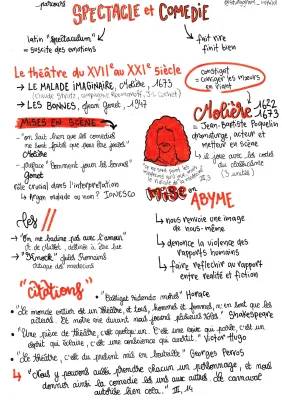 parcours
SPECTACLE et COMÉDIE
latin "spectaculum"
= suscite des émotions
fait rire
finit bien
Le théâtre du XVIIe au XXIe siècle
→ LE MALADE IMAGINAIRE, Molière, 1673
→ LES BONNES, Jean Genet, 1947
castigat
= corriger les mœurs
en riant
MISES EN SCÈNE
"on sait bien que les comédies
ne sont faites que pour être jouées"
Molière
- préface "Comment jouer les bonnes"
Genet
rôle crucial dans l'interprétation
↳ Argan malade ou non ? IONESCO
Molière 1622
1673
= Jean-Baptiste Poquelin
dramaturge, acteur et
metteur en scène
+ il joue avec les codes
du classicisme
(3 unités)
Mise en
ABYME
↳ nous renvoie une image
de nous-même
↳ dénonce la violence des
rapports humains
↳ faire réfléchir au rapport
entre réalité et fiction
les //
→ "On ne badine pas avec l'amour"
→ "Knock" Jules Romains
critique des médecins
"Citations"
• "Castigat ridendo mores" Horace
• "Le monde entier est un théâtre, et tous, hommes et femmes, n'en sont que les
acteurs. Et notre vie durant nous jouons plusieurs rôles." Shakespeare
• "Une pièce de théâtre, c'est quelqu'un. C'est une voix qui parle, c'est un
esprit qui éclaire, c'est une conscience qui avertit." Victor Hugo
• "Le théâtre, c'est du présent mis en bouteille" Georges Perros
↳ "Nous y pouvons aussi prendre chacun un personnage, et nous
donner ainsi la comédie les uns aux autres. Le carnaval
autorise bien cela." III, 14